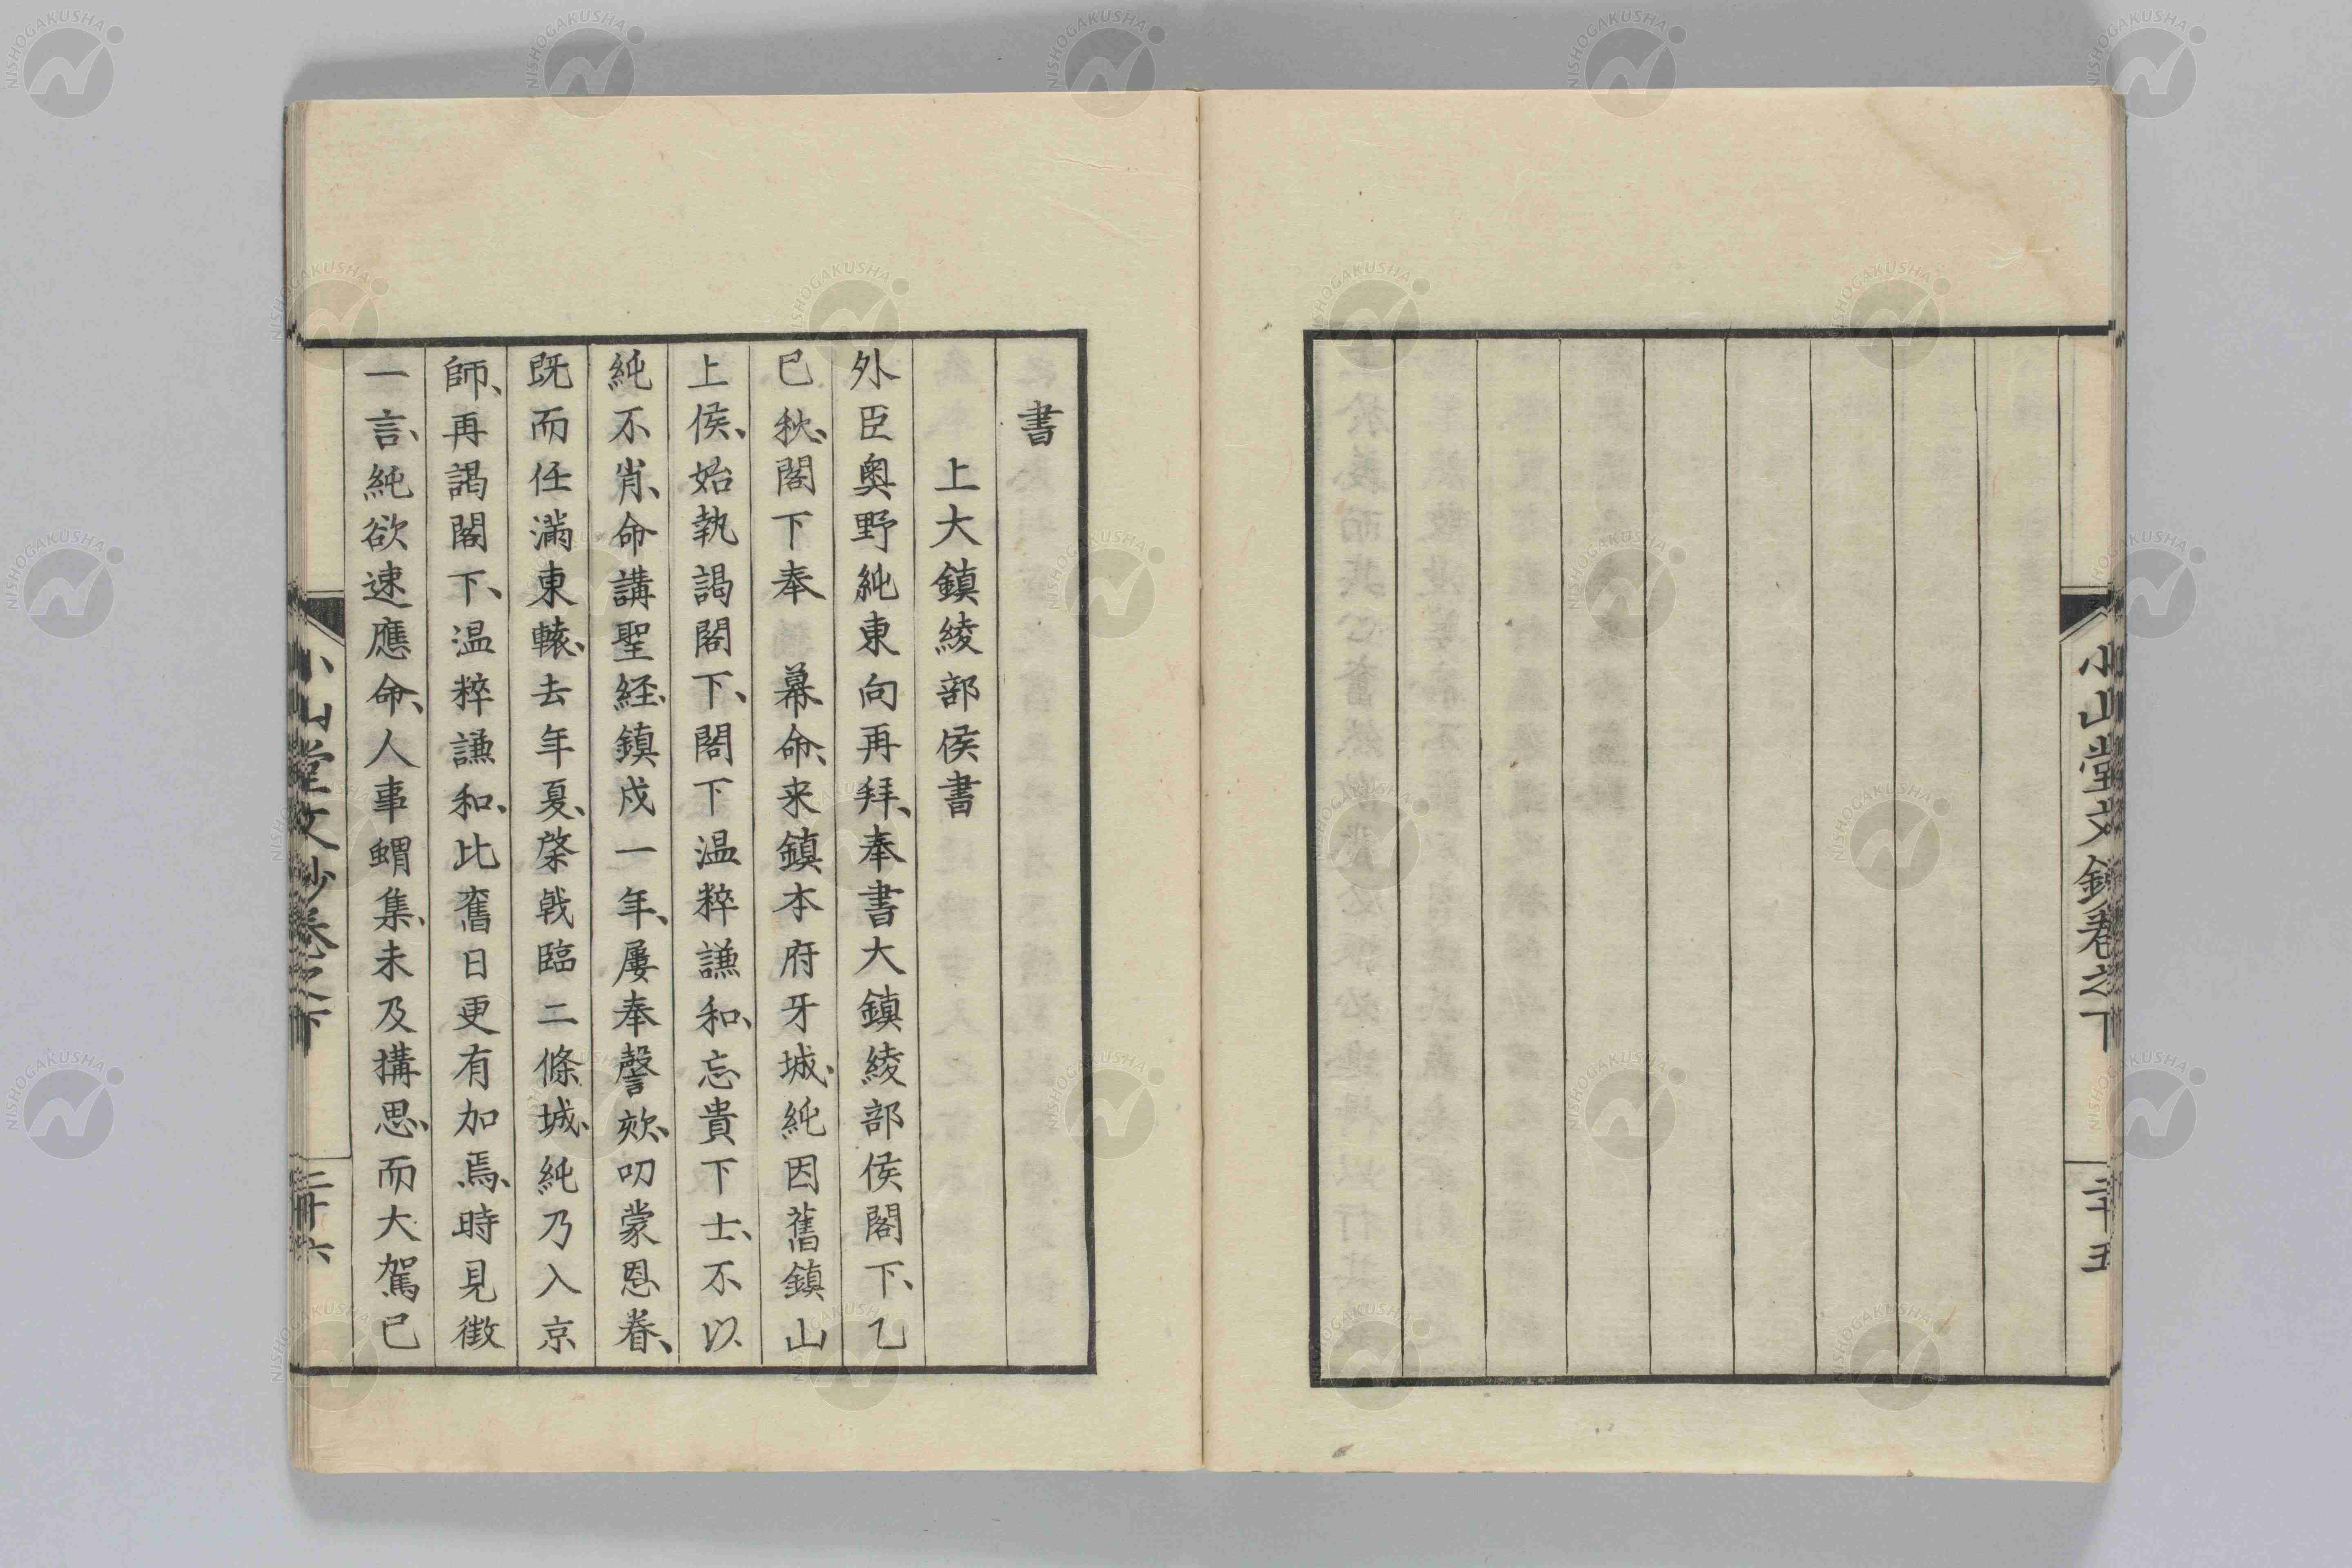 小山堂文鈔卷之下
二十五
書
上大鎮綾部侯書
外臣奥野純東向再拜、奉書大鎮綾部侯閣下、乙
巳秋、閣下奉　幕命、来鎮本府牙城、純因舊鎮山
上侯、始執謁閣下、閣下温粹謙和、忘貴下士、不以
純不肖、命講聖経、鎮戍一年、屢奉謦欬、叨蒙恩眷、
既而任滿東轅、去年夏、棨戟臨二條城、純乃入京
師、再謁閣下、温粹謙和、比舊日更有加焉、時見徴
一言、純欲速應命、人事蝟集、未及搆思、而大駕已
小山堂文鈔卷之下
二十六
NISHOGAKUSHA